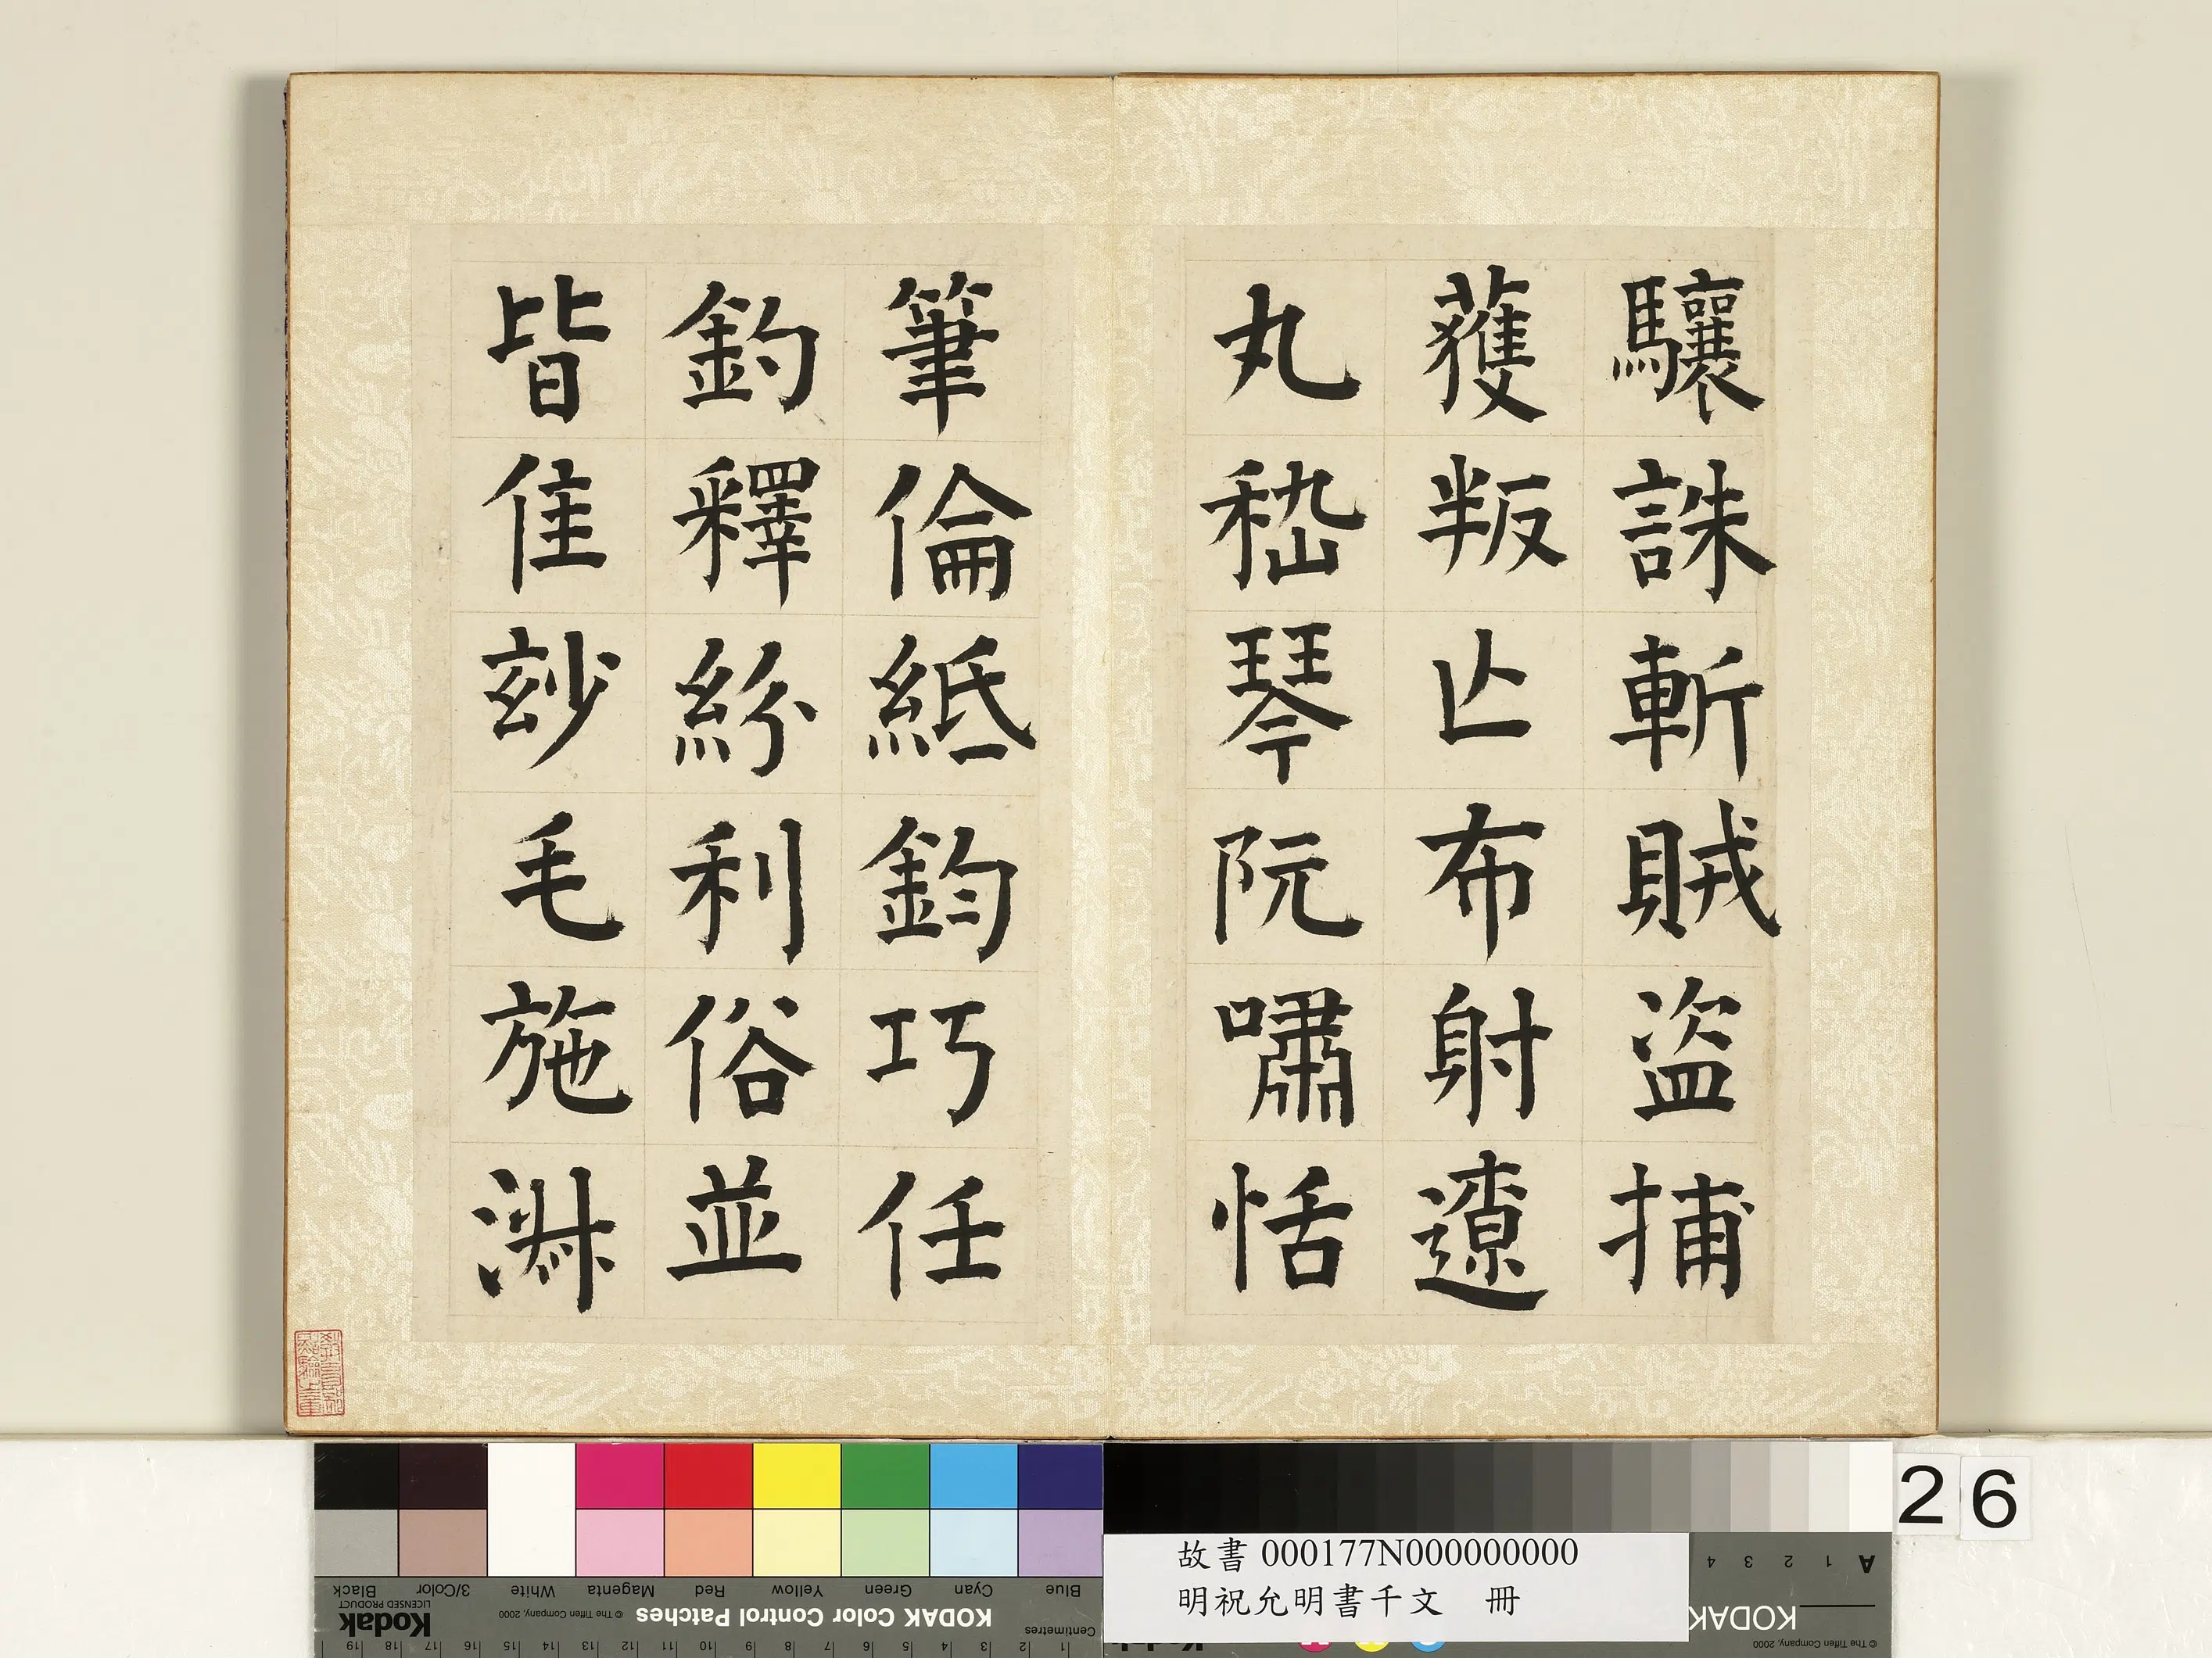 驤誅斬賊盜捕
獲叛亾布射遼
丸嵇琴阮嘯恬
筆倫紙鈞巧任
釣釋紛利俗並
皆佳玅毛施淑
26
故書 000177N000000000
明祝允明書千文 冊
Black 3/Color White Magenta Red Yellow Green Cyan Blue
Kodak
LICENSED PRODUCT
© The Tiffen Company, 2000
KODAK Color Control Patches
Centimetres
19 18 17 16 15 14 13 12 11 10 9 8 7 6 5 4 3 2 1
A 1 2 3 4
KODAK
© The Tiffen Company, 2000